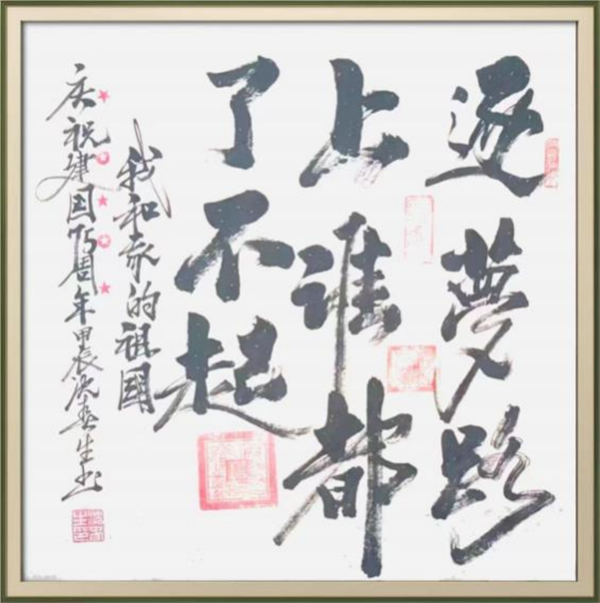 逐夢路
上谁都
了不起
我和我的祖國
庆祝建国75周年甲辰春生书